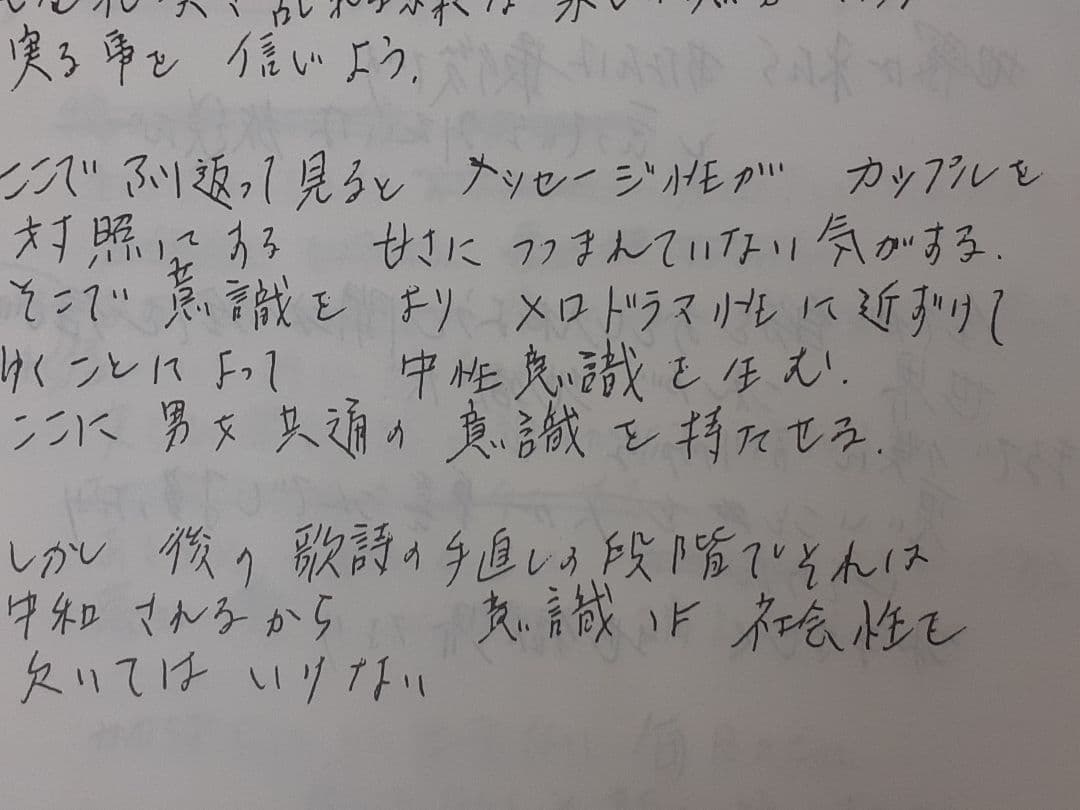 実る事を 信じよう.
ここで ふり返って見ると メッセージ性が カップルを
対照にする 甘さに つつまれていない気がする.
そこで 意識を より メロドラマ性に近ずけて
ゆくことによって 中性意識を生む.
ここに 男女共通の 意識を持たせる.
しかし 後の歌詩の手直しの段階でそれは
中和されるから 意識は 社会性を
欠いてはいけない